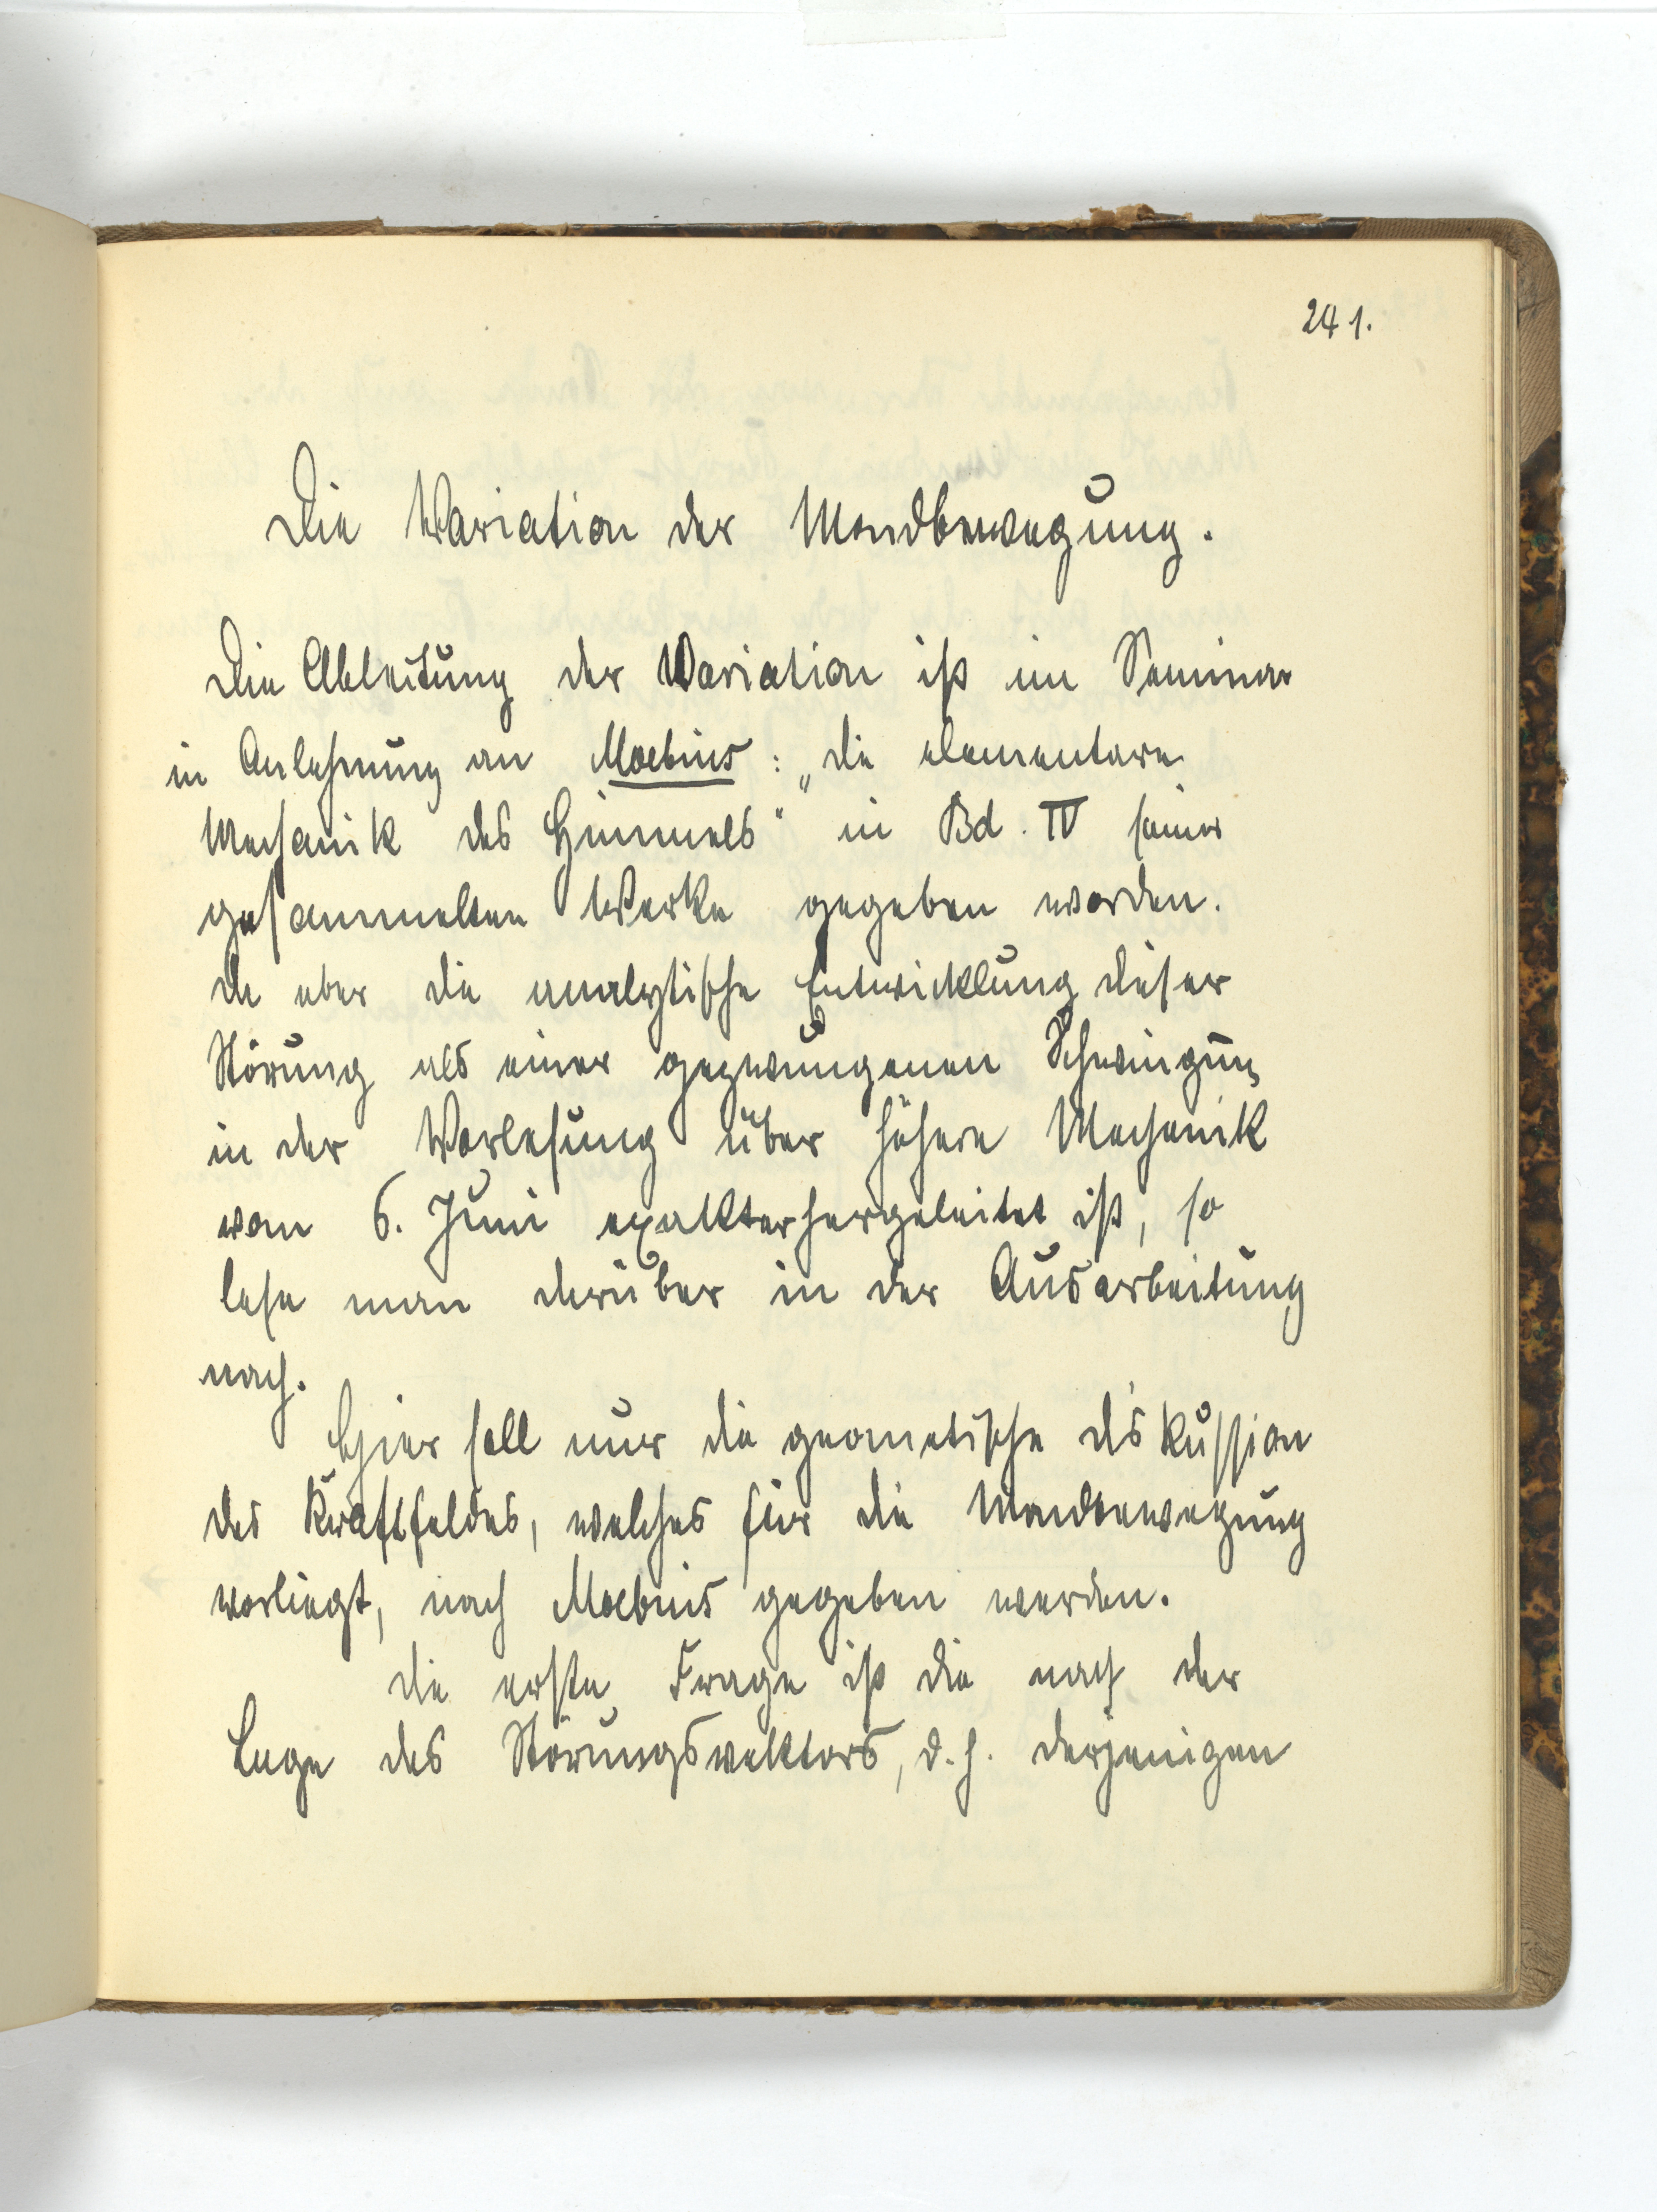 241.
Die Variation der Mondbewegung.
Die Ableitung der Variation ist im Seminar
in Anlehnung an Moebius: „die elementare
Mechanik des Himmels“ in Bd. IV seiner
gesammelten Werke gegeben worden.
da aber die analytische Entwicklung dieser
Störung als einer gezwungenen Schwingung
in der Vorlesung über höhere Mechanik
vom 6. Juni exakter hergeleitet ist, so
lese man darüber in der Ausarbeitung
nach.
Hier soll nur die geometische Diskussion
des Kraftfeldes, welches für die Mondbewegung
vorliegt, nach Moebius gegeben werden.
die erste Frage ist die nach der
Lage des Störungsvektors, d. h. derjenigen